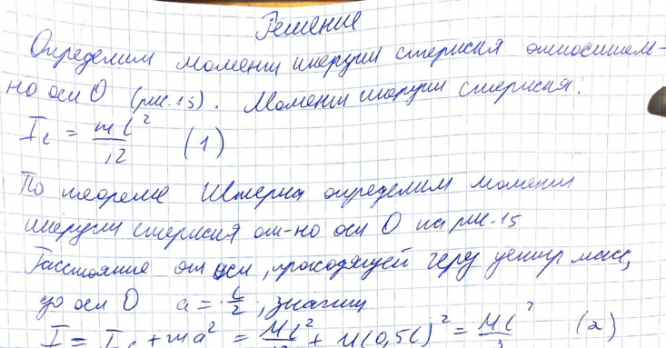 Решение
Определим момент инерции стержня относитель-
но оси О (рис.15). Момент инерции стержня:
I_c = ml²/12 (1)
По теореме Штерна определим момент
инерции стержня от-но оси О на рис.15
Расстояние от оси, проходящей через центр масс,
до оси О a = l/2, значит
I = I_c + ma² = Ml²/12 + M(0,5l)² = Ml²/3 (2)